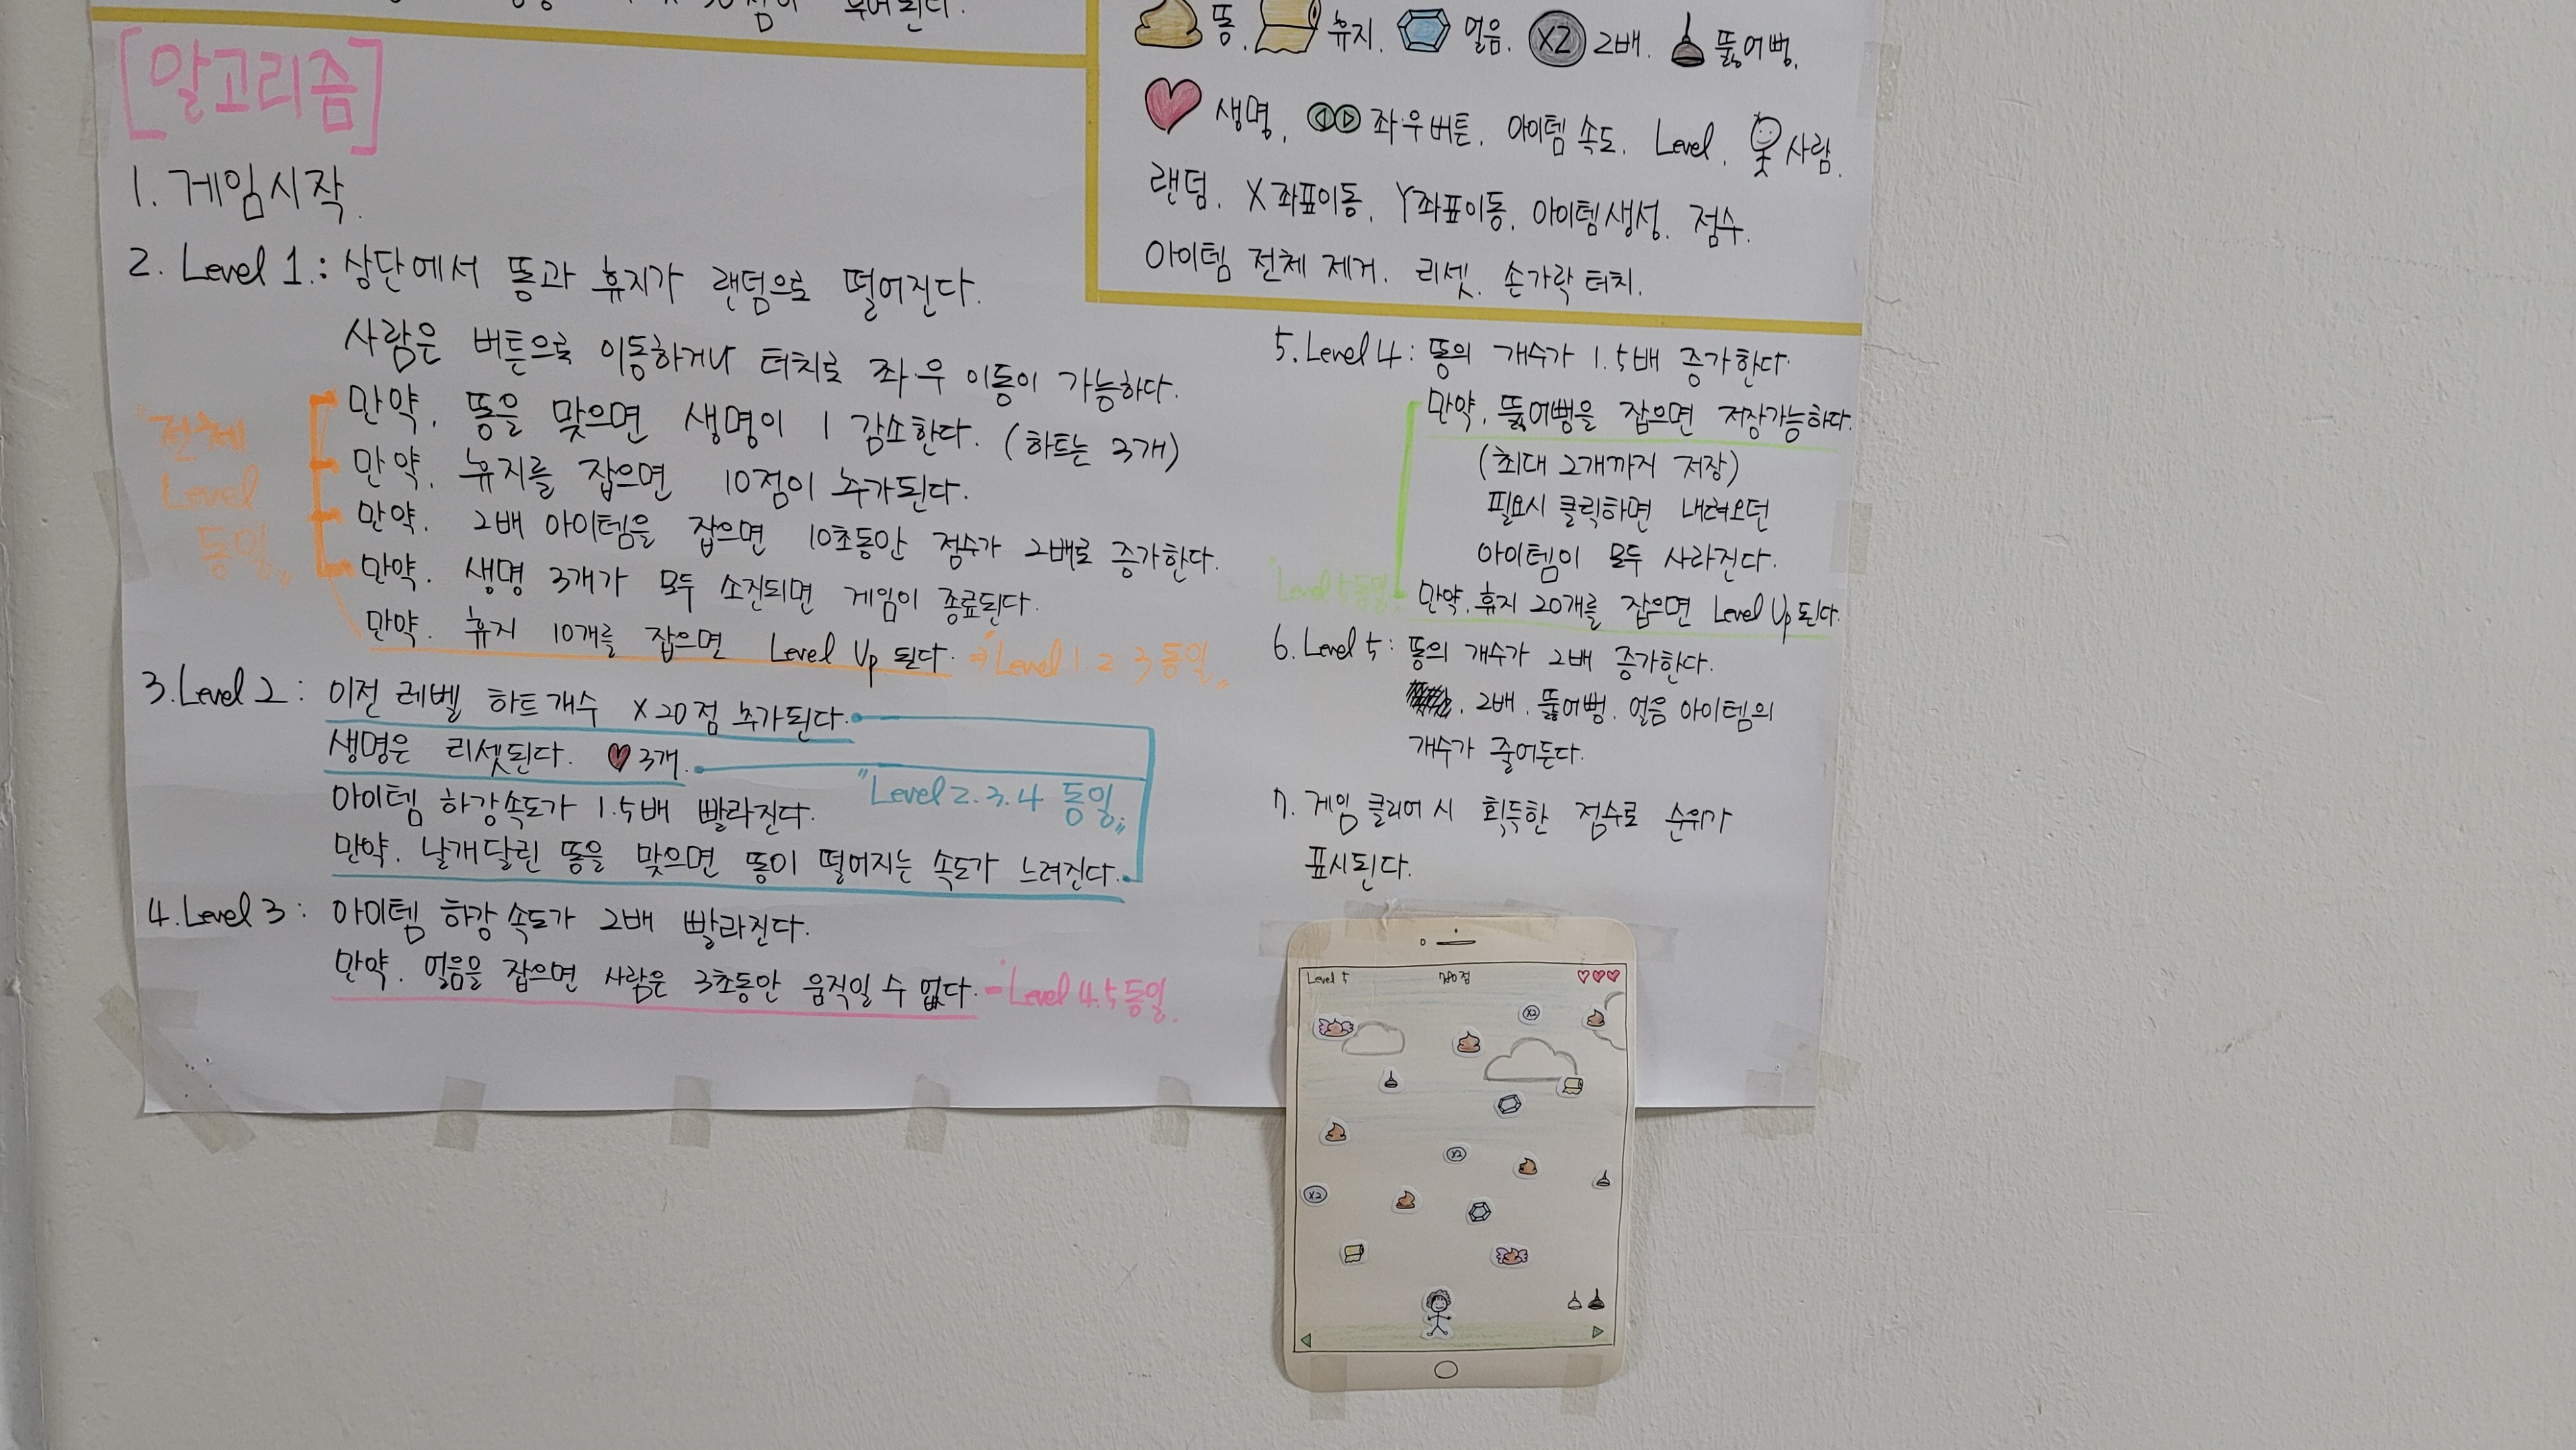 부여된다.
[알고리즘]
1. 게임시작.
2. Level 1.: 상단에서 똥과 휴지가 랜덤으로 떨어진다.
사람은 버튼으로 이동하거나 터치로 좌우 이동이 가능하다.
만약, 똥을 맞으면 생명이 1 감소한다. (하트는 3개)
만약, 휴지를 잡으면 10점이 추가된다.
만약. 2배 아이템을 잡으면 10초동안 점수가 2배로 증가한다.
만약. 생명 3개가 모두 소진되면 게임이 종료된다.
"전체
Level
동일"
만약. 휴지 10개를 잡으면 Level Up 된다. → "Level 1.2.3 동일"
3. Level 2: 이전 레벨 하트개수 X 20점 추가된다.
생명은 리셋된다. 3개.
"Level 2.3.4 동일"
아이템 하강속도가 1.5배 빨라진다.
만약. 날개달린 똥을 맞으면 똥이 떨어지는 속도가 느려진다.
4. Level 3: 아이템 하강속도가 2배 빨라진다.
만약. 얼음을 잡으면 사람은 3초동안 움직일 수 없다. - "Level 4.5 동일
똥. 휴지. 얼음. X2 2배. 뚫어뻥.
생명, 좌우버튼. 아이템 속도. Level. 사람.
랜덤. X좌표이동. Y좌표이동. 아이템생성. 점수.
아이템 전체 제거. 리셋. 손가락 터치.
5. Level 4: 똥의 개수가 1.5배 증가한다.
만약. 뚫어뻥을 잡으면 저장가능하다.
(최대 2개까지 저장)
필요시 클릭하면 내려오던
아이템이 모두 사라진다.
"Level 5 동일"
만약. 휴지 20개를 잡으면 Level Up 된다.
6. Level 5: 똥의 개수가 2배 증가한다.
2배. 뚫어뻥. 얼음 아이템의
개수가 줄어든다.
7. 게임 클리어 시 획득한 점수로 순위가
표시된다.
Level 5
X2
X2
X2